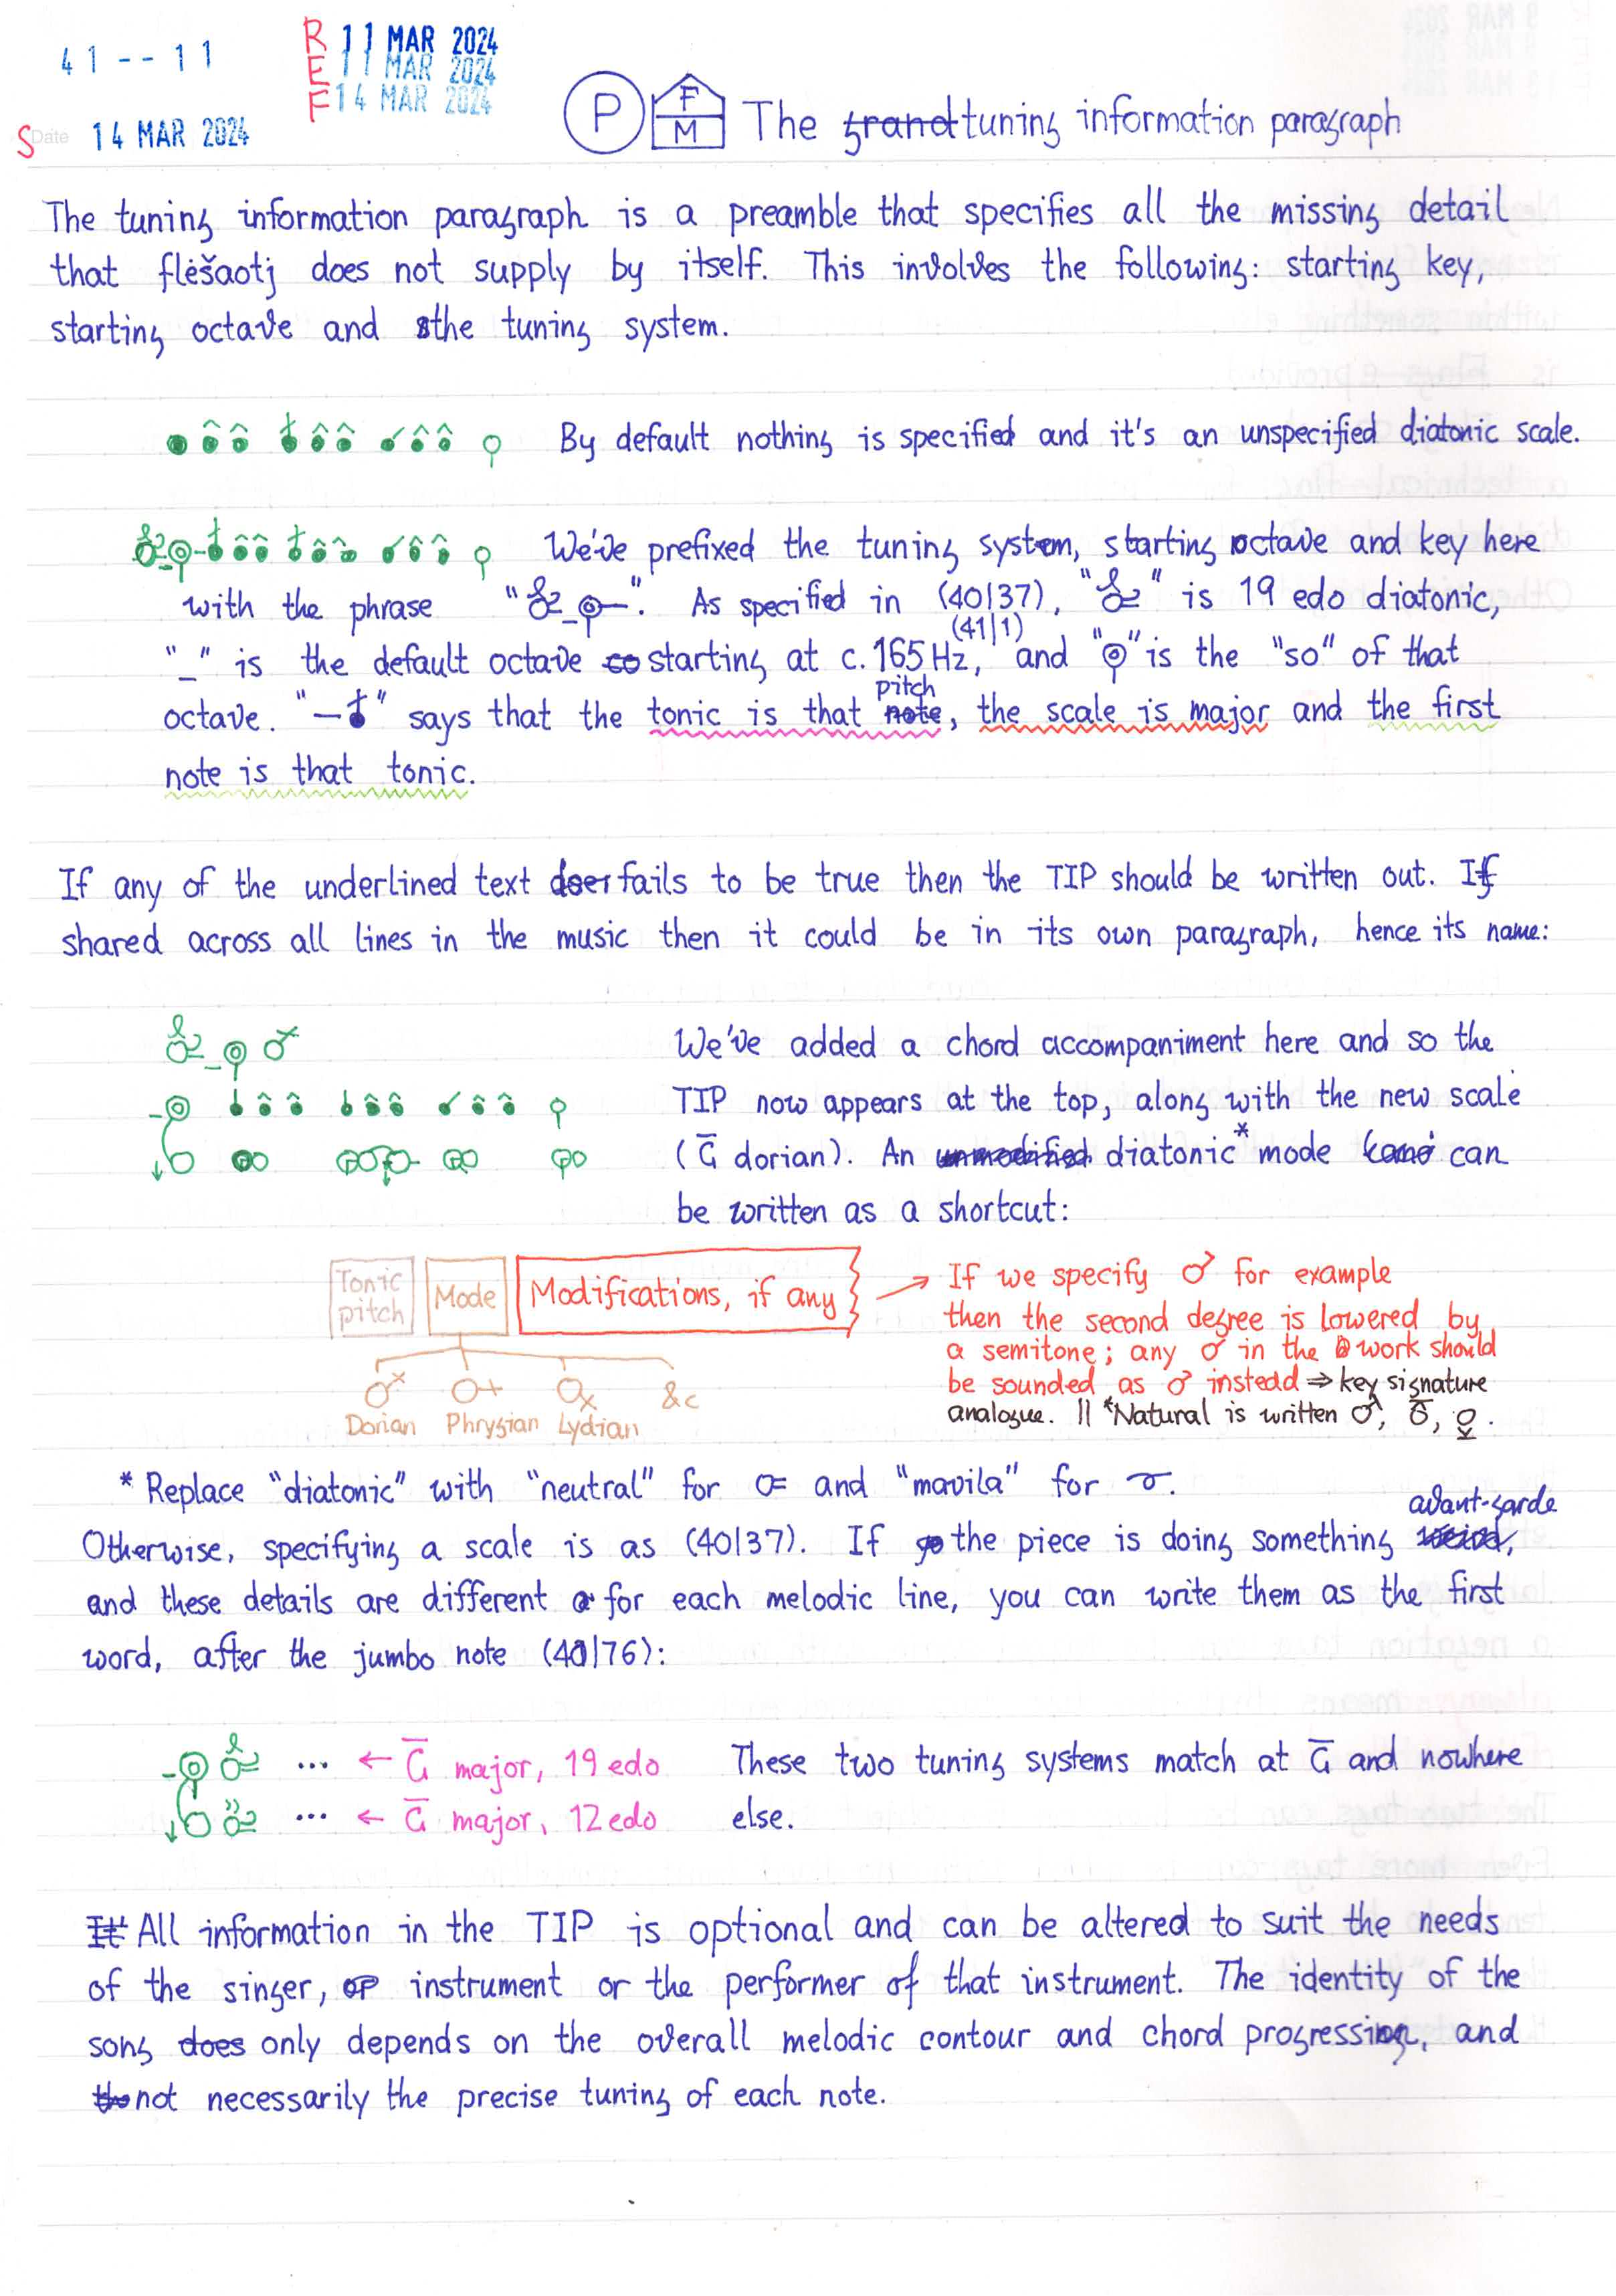 41--11
REF
11 MAR 2024
11 MAR 2024
14 MAR 2024
S Date 14 MAR 2024
P F M The grand tuning information paragraph
The tuning information paragraph is a preamble that specifies all the missing detail
that flėšaotj does not supply by itself. This involves the following: starting key,
starting octave and the tuning system.
By default nothing is specified and it's an unspecified diatonic scale.
We've prefixed the tuning system, starting octave and key here
with the phrase " ". As specified in (40|37), " " is 19 edo diatonic,
(41|1)
"_" is the default octave starting at c. 165 Hz, and " " is the "so" of that
pitch
octave. " " says that the tonic is that note, the scale is major and the first
note is that tonic.
If any of the underlined text fails to be true then the TIP should be written out. If
shared across all lines in the music then it could be in its own paragraph, hence its name:
We've added a chord accompaniment here and so the
TIP now appears at the top, along with the new scale
(G̅ dorian). An unmodified diatonic* mode can
be written as a shortcut:
Tonic pitch
Mode
Modifications, if any
→ If we specify ♂ for example
then the second degree is lowered by
a semitone; any ♂ in the work should
be sounded as ♂ instead ⇒ key signature
analogue. || *Natural is written , , .
Dorian Phrygian Lydian &c
* Replace "diatonic" with "neutral" for and "mavila" for .
avant-garde
Otherwise, specifying a scale is as (40|37). If the piece is doing something weird,
and these details are different for each melodic line, you can write them as the first
word, after the jumbo note (40|76):
... ← G̅ major, 19 edo These two tuning systems match at G̅ and nowhere
... ← G̅ major, 12 edo else.
All information in the TIP is optional and can be altered to suit the needs
of the singer, instrument or the performer of that instrument. The identity of the
song does only depends on the overall melodic contour and chord progression, and
not necessarily the precise tuning of each note.